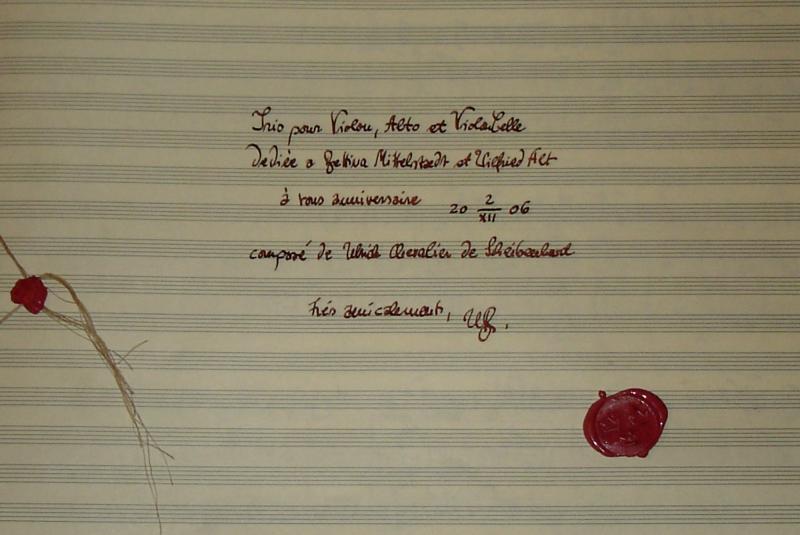 Trio pour Violon, Alto et Violoncelle
dediée a Bettina Mittelstaedt et Wilfried Alt
à vous anniversaire 20 2/XII 06
composé de Ulrich Chevalier de
Très amicalement,